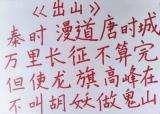 《出山》
秦时漫道唐时城
万里长征不算完
但使龙旗高峰在
不叫胡妖做鬼山